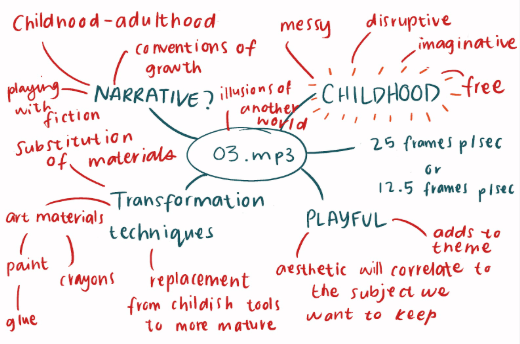 Childhood-adulthood
conventions of
growth
playing
with
fiction
NARRATIVE?
messy
disruptive
imaginative
free
CHILDHOOD
illusions of
another
world
03.mp3
25 frames p/sec
or
12.5 frames p/sec
Substitution
of materials
Transformation
techniques
art materials
paint
crayons
glue
replacement
from childish tools
to more mature
PLAYFUL
adds to
theme
aesthetic will correlate to
the subject we
want to keep